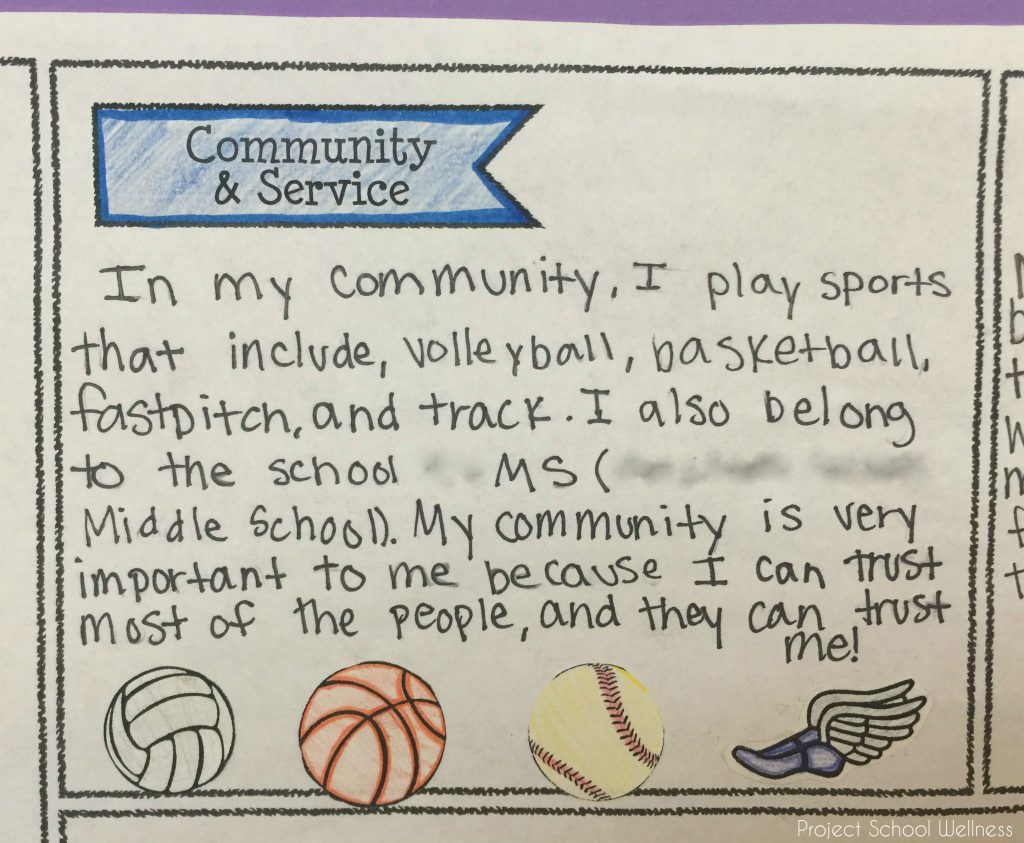 Community
& Service
In my community, I play sports
that include, volleyball, basketball,
fastpitch, and track. I also belong
to the school MS (
Middle School). My community is very
important to me because I can trust
most of the people, and they can trust
me!
Project School Wellness